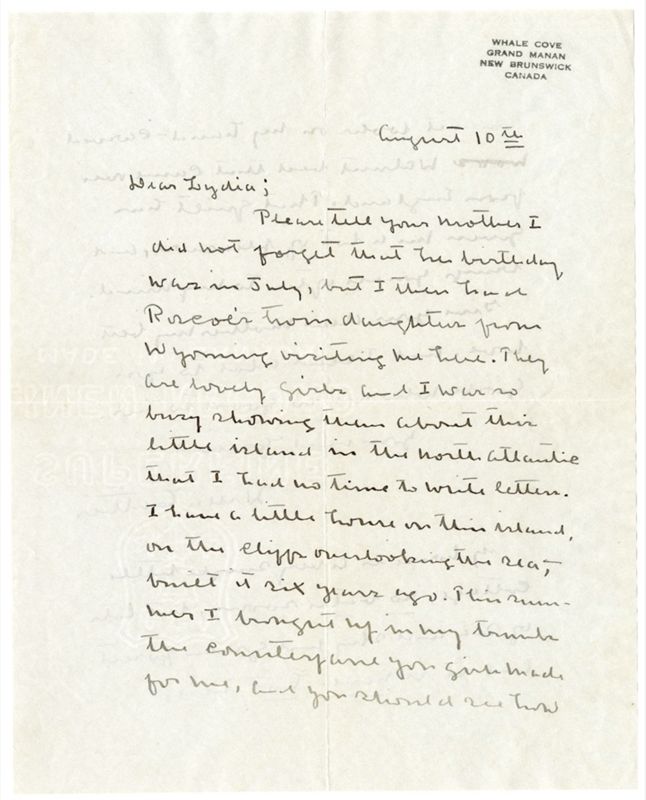 WHALE COVE
GRAND MANAN
NEW BRUNSWICK
CANADA
August 10th
Dear Lydia;
Please tell your mother I
did not forget that her birthday
was in July, but I then had
Roscoe's twin daughters from
Wyoming visiting me here. They
are lovely girls and I was so
busy showing them about this
little island in the north Atlantic
that I had no time to write letters.
I have a little house on this island,
on the cliffs overlooking the sea,
built it six years ago. This sum-
mer I brought up in my trunk
the counterpane you girls made
for me, and you should see how